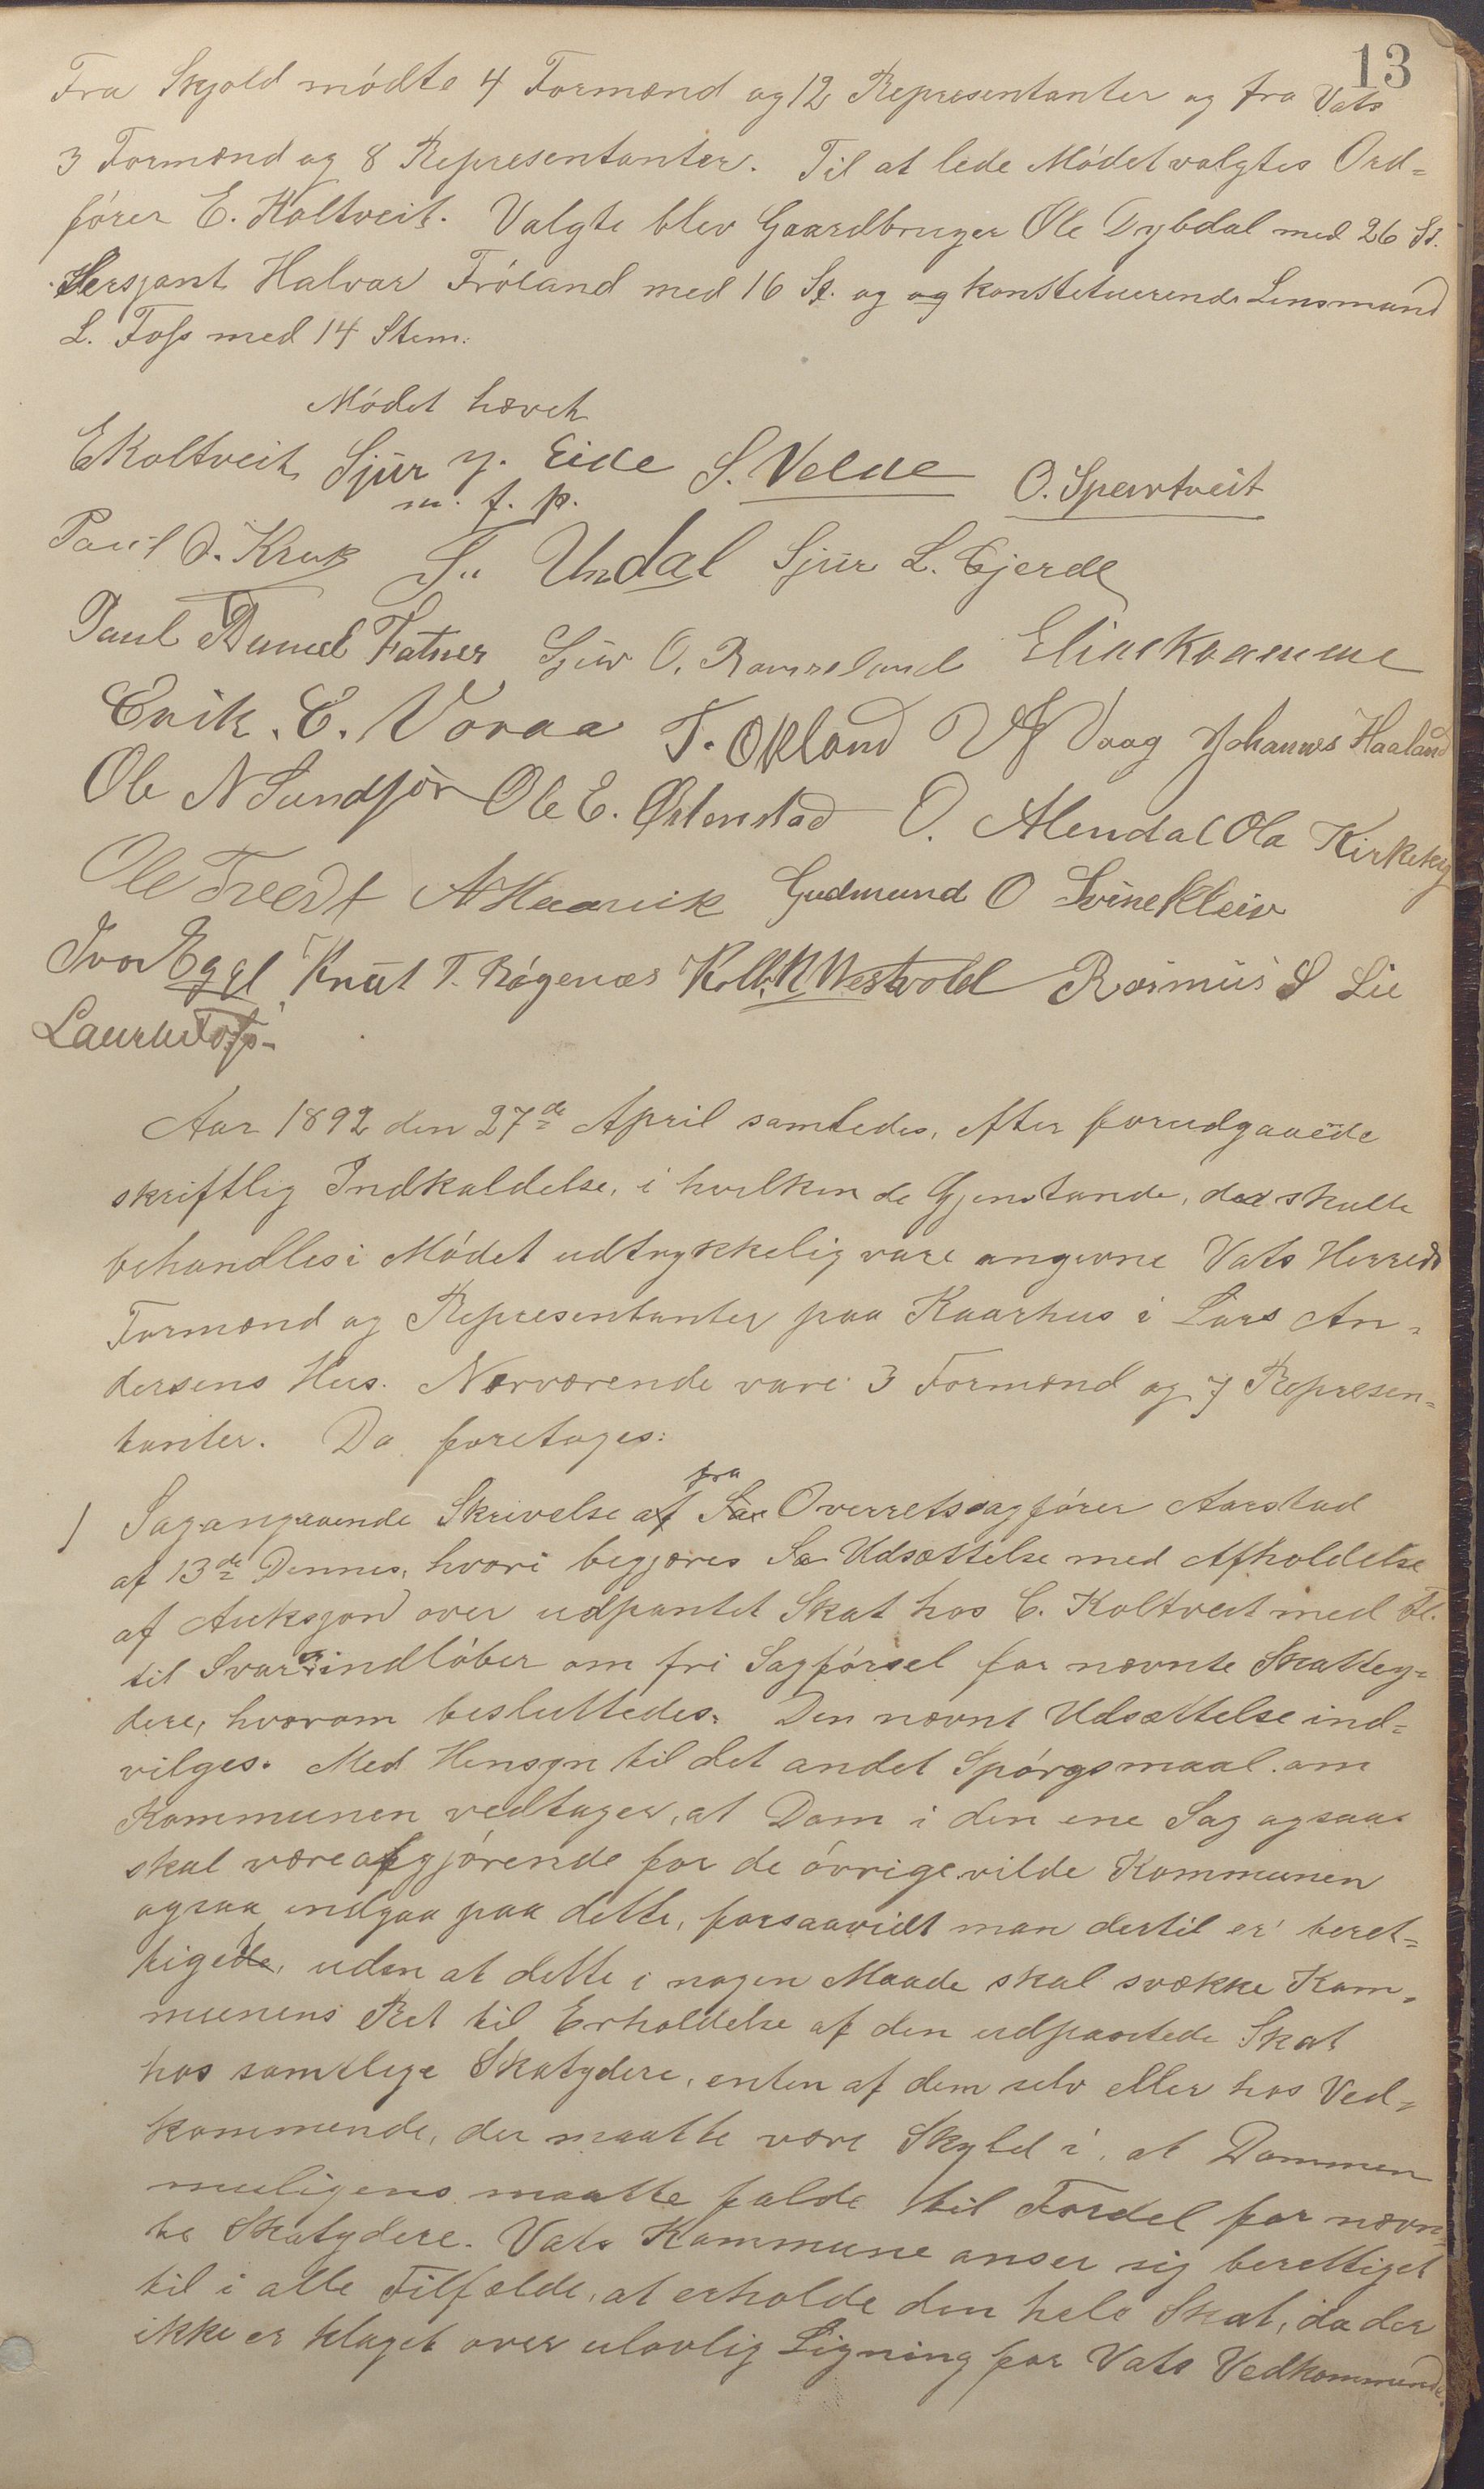 13
Fra Skjold mødte 4 Formænd og 12 Representanter og fra Vats
3 Formænd og 8 Representanter. Til at lede Mødet valgtes Ord=
fører E. Koltveit. Valgte blev Gaardbruger Ole Dybdal med 26 St.
Sersjant Halvar Frøland med 16 St. og og konstetuerende Lensmand
L. Foss med 14 Stem.
Mødet hævet
E Koltveit Sjur J. Eide S. Velde O. Spervtveit
m. f. p.
Paul O. Krak Undal Sjur L. Gjerde
Paul Fatner Sjur O. Ramseland
Erik. E. Voraa T. Økland Vaag Johannes Haaland
Ole N Sundfør Ole E. Østenstad O. Alendal Ola Kirkeby
Ole Tvedt Gudmund O Svinekleiv
Ivar Eggel Knut T. Røgenæs Kolb. N Westvold Rasmus S Lie
Laurits Foss.
Aar 1892 den 27de April samledes, efter forudgaaede
skriftlig Indkaldelse, i hvilken de Gjenstande, der skulle
behandles i Mødet udtrykkelig vare angivne Vats Herreds
Formænd og Representanter paa Kaarhus i Lars An=
dersens Hus. Nærværende vare 3 Formænd og 7 Represen=
tanter. Da foretages:
fra
1 Sag angaaende Skrivelse af Sa Overretssagfører Aarstad
af 13de Dennes, hvori begjæres Sa Udsættelse med Afholdelse
af Auksjon over udpantet Skat hos E. Koltveit med Fl.
til Svar indløber om fri Sagførsel for nævnte Skattey=
dere, hvorom besluttedes: Den nævnt Udsættelse ind=
vilges. Med Hensyn til det andet Spørgsmaal om
Kommunen vedtager, at Dom i den ene Sag ogsaa
skal være afgjørende for de øvrige vilde Kommunen
ogsaa indgaa paa dette, forsaavidt man dertil er beret=
tigede, uden at dette i nogen Maade skal svække Kom=
munens Ret til Erholdelse af den udpantede Skat
hos samtlige Skatydere, enten af dem selv eller hos Ved=
kommende, der maatte være Skyld i, at Dommen
muligens maatte falde til Fordel for nævn=
te Skatydere. Vats Kommune anser sig berettiget
til i alle Tilfælde, at erholde den hele Skat, da der
ikke er klaget over ulovlig Ligning for Vats Vedkommende.